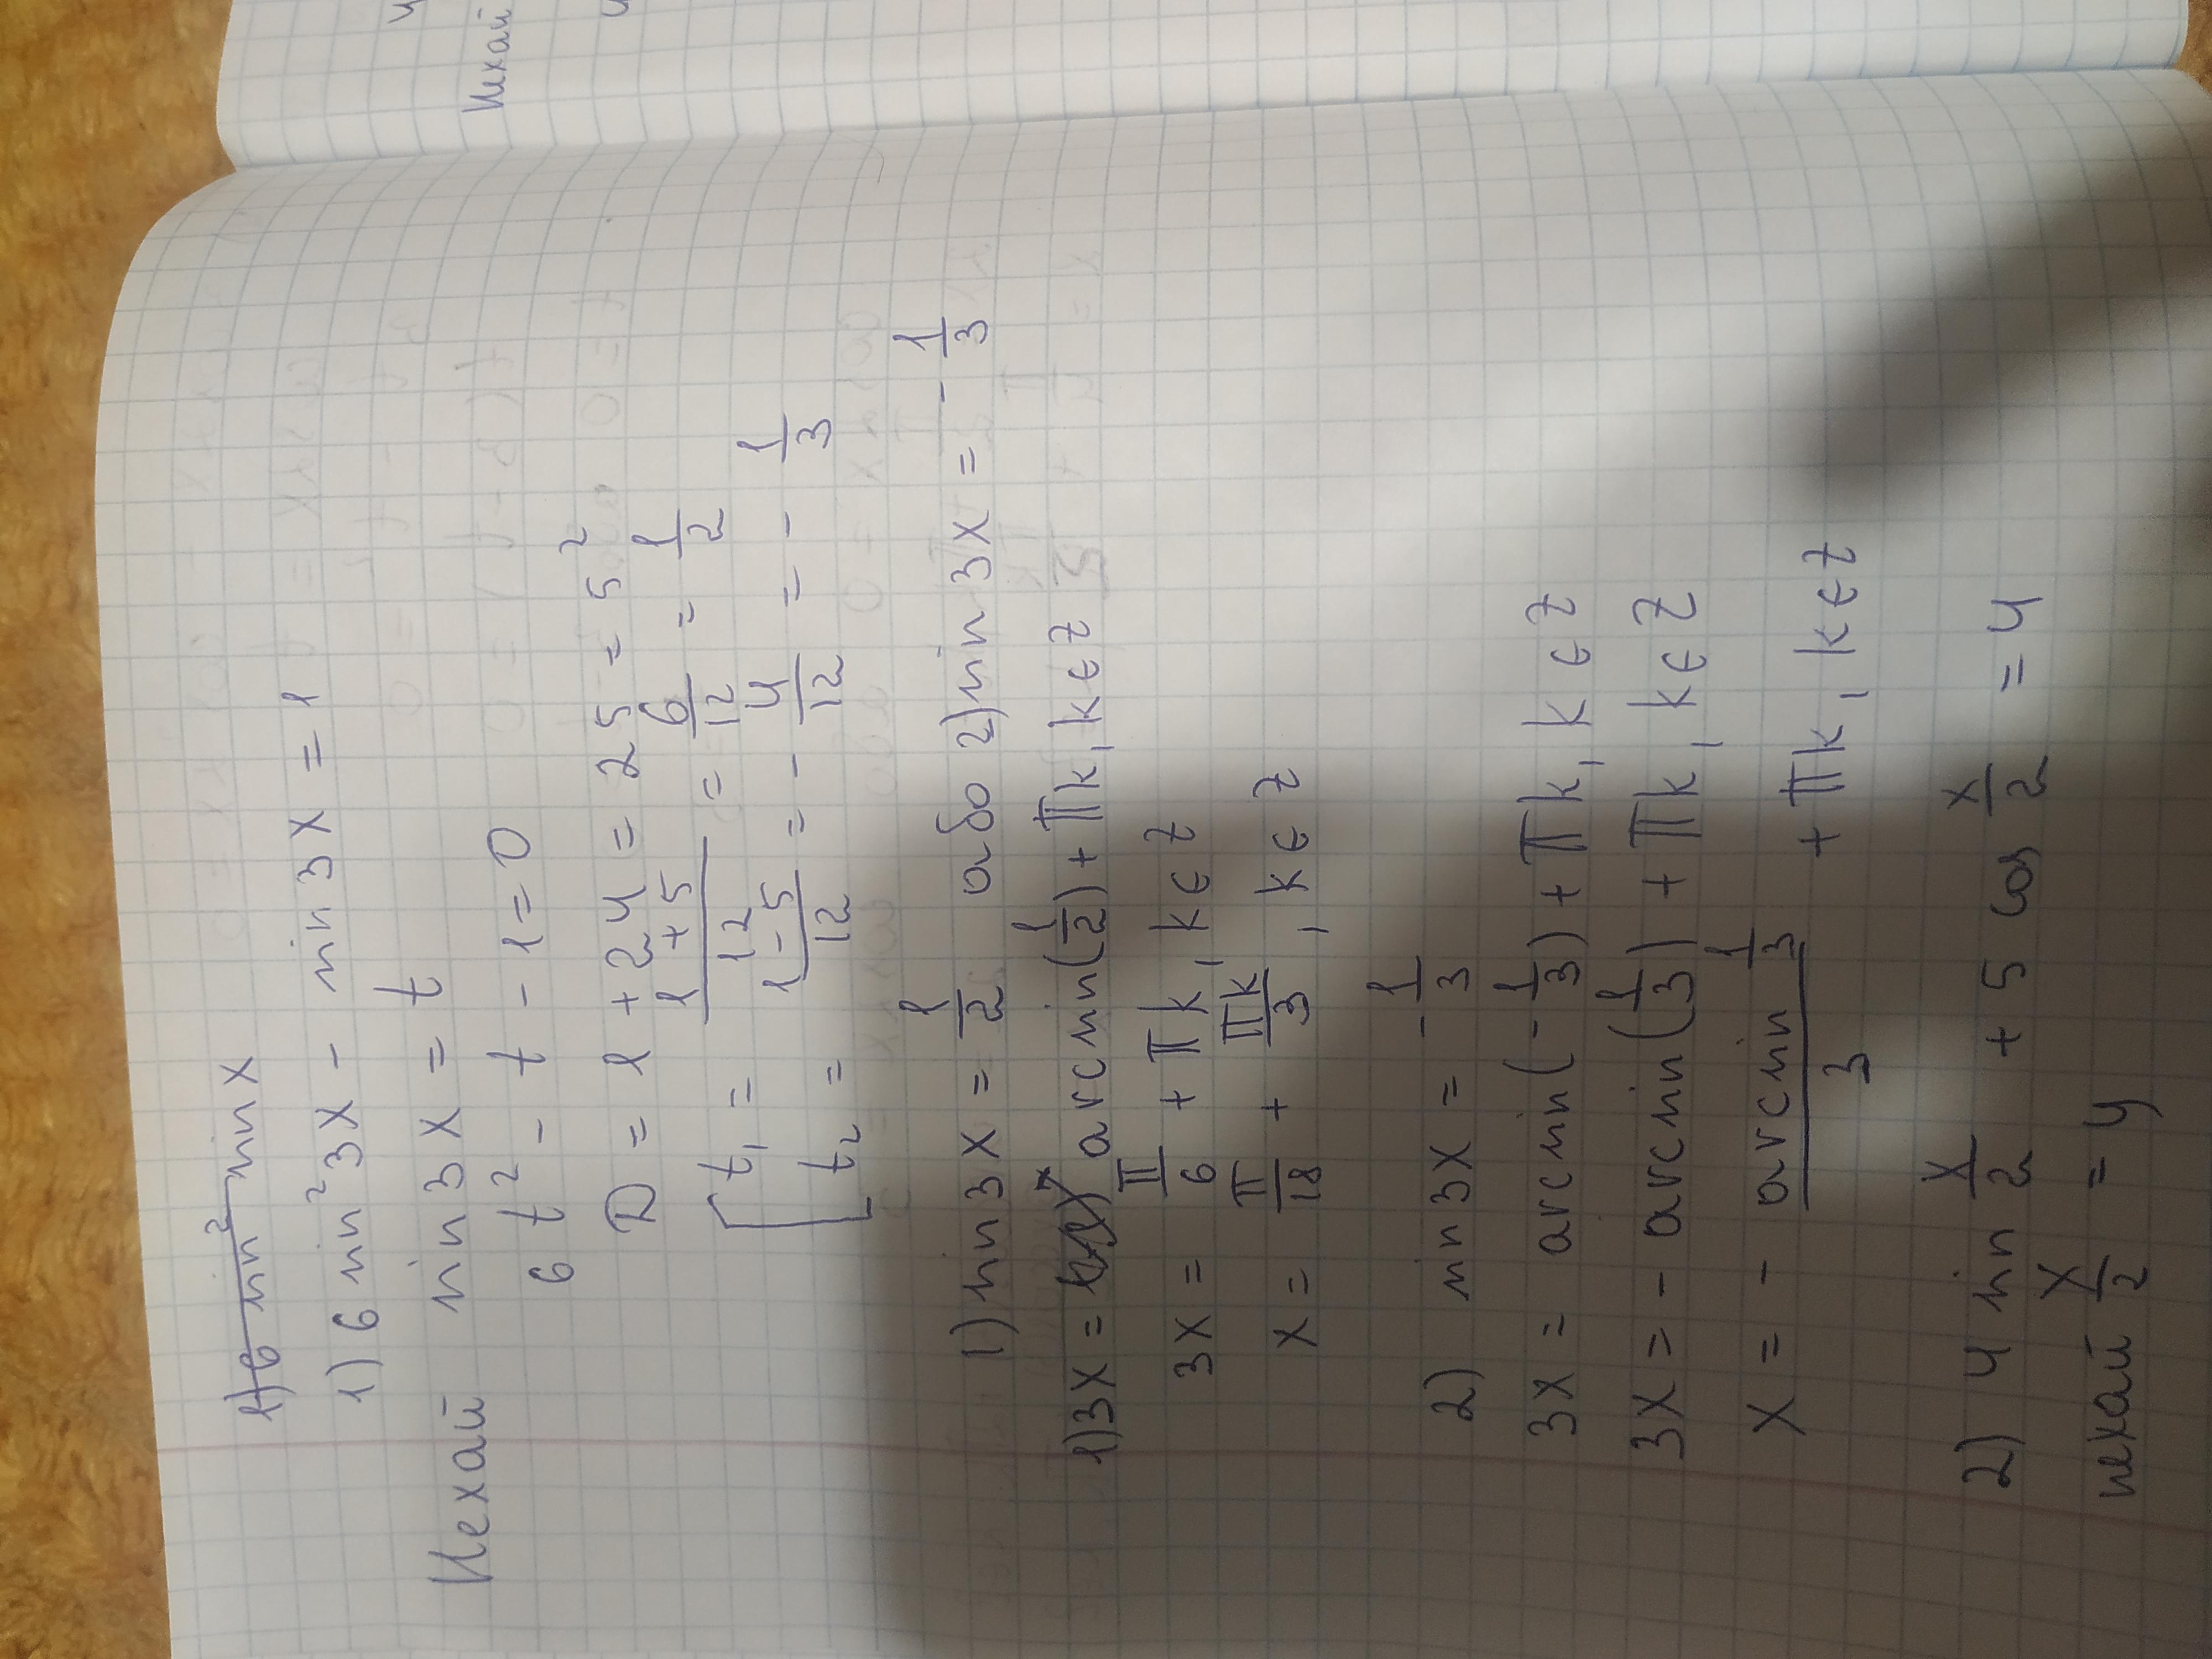 1) 6 sin² sin x
1) 6 sin² 3x - sin 3x = 1
Нехай sin 3x = t
6 t² - t - 1 = 0
D = 1 + 24 = 25 = 5²
t₁ = (1 + 5)/12 = 6/12 = 1/2
t₂ = (1 - 5)/12 = - 4/12 = - 1/3
1) sin 3x = 1/2 або 2) sin 3x = - 1/3
1) 3x = arcsin(1/2) + πk, k ∈ Z
3x = π/6 + πk, k ∈ Z
x = π/18 + πk/3, k ∈ Z
2) sin 3x = - 1/3
3x = arcsin(- 1/3) + πk, k ∈ Z
3x = - arcsin(1/3) + πk, k ∈ Z
x = - (arcsin 1/3)/3 + πk, k ∈ Z
2) 4 sin x/2 + 5 cos x/2 = 4
нехай x/2 = y
Нехай